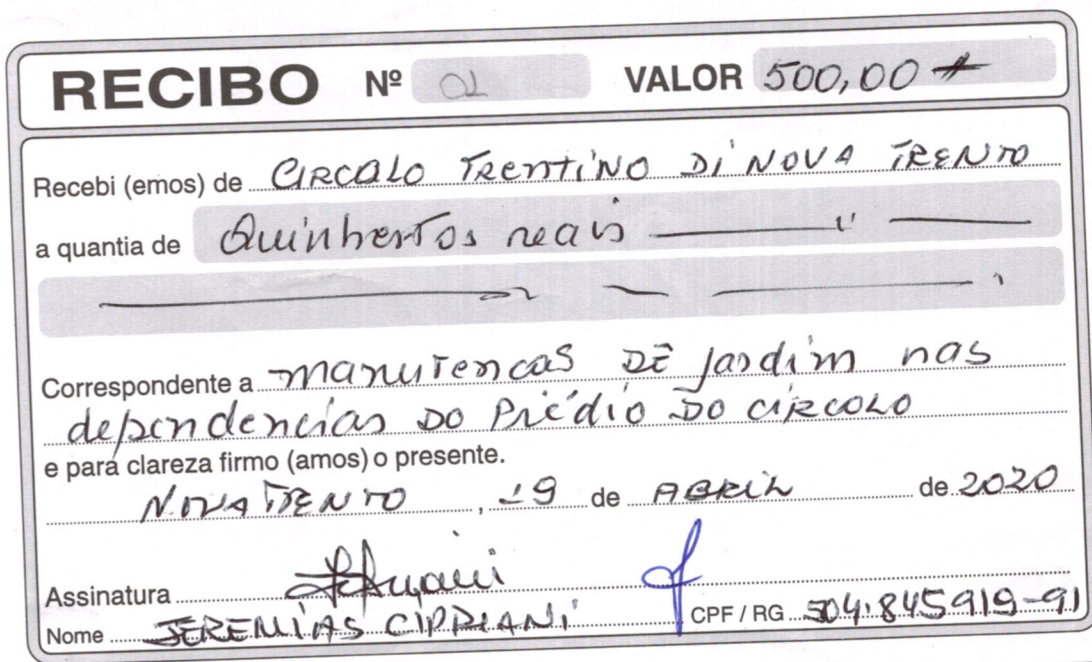 RECIBO Nº 01 VALOR 500,00
Recebi (emos) de CIRCOLO TRENTINO DI NOVA TRENTO
a quantia de Quinhentos reais
Correspondente a manutencas DE jardim nas
dependencias DO Prédio DO CIRCOLO
e para clareza firmo (amos) o presente.
NOVA TRENTO, 19 de ABRIL de 2020
Assinatura
Nome JEREMIAS CIPRIANI CPF / RG 504.845919-91